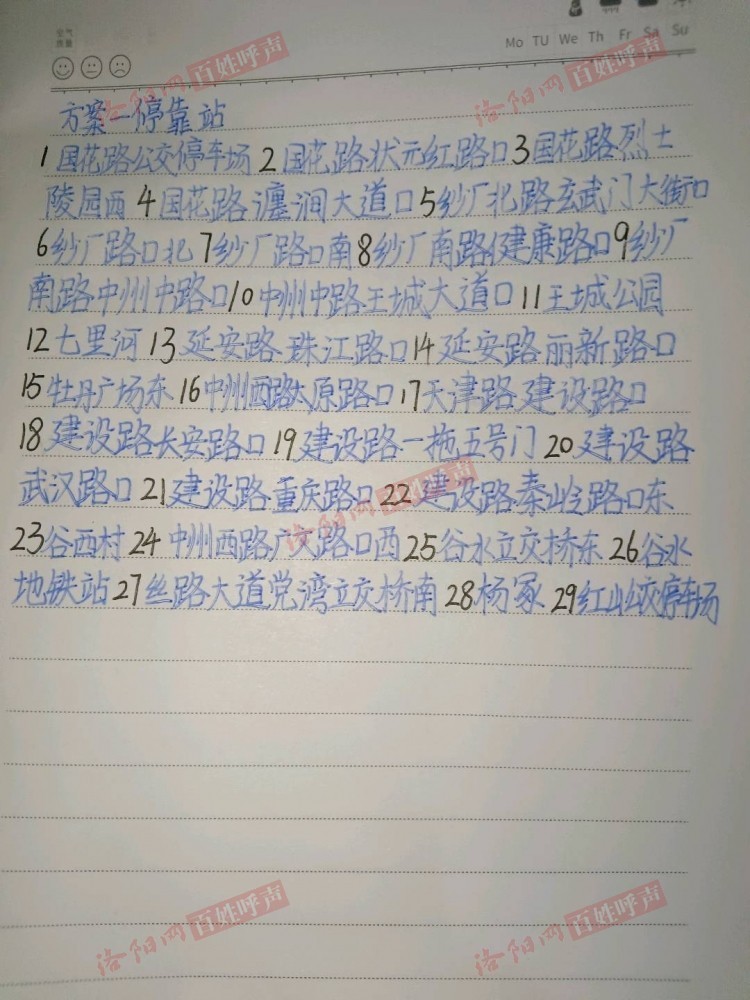 空气
质量
Mo TU We Th Fr Sa Su
洛阳网 百姓呼声
洛阳网 百姓呼声
方案一停靠站
1国花路公交停车场 2国花路状元红路口3国花路烈士
陵园西 4国花路瀍涧大道口5纱厂北路玄武门大街口
6纱厂路口北7纱厂路口南8纱厂南路健康路口9纱厂
南路中州中路口10中州中路王城大道口11王城公园
12七里河13延安路珠江路口14延安路丽新路口
15牡丹广场东16中州西路太原路口17天津路建设路口
18建设路长安路口19建设路一拖五号门20建设路
武汉路口21建设路重庆路口22建设路秦岭路口东
23谷西村24中州西路广文路口西25谷水立交桥东26谷水
地铁站27丝路大道党湾立交桥南28杨冢29红山公交停车场
洛阳网 百姓呼声
洛阳网 百姓呼声
洛阳网 百姓呼声